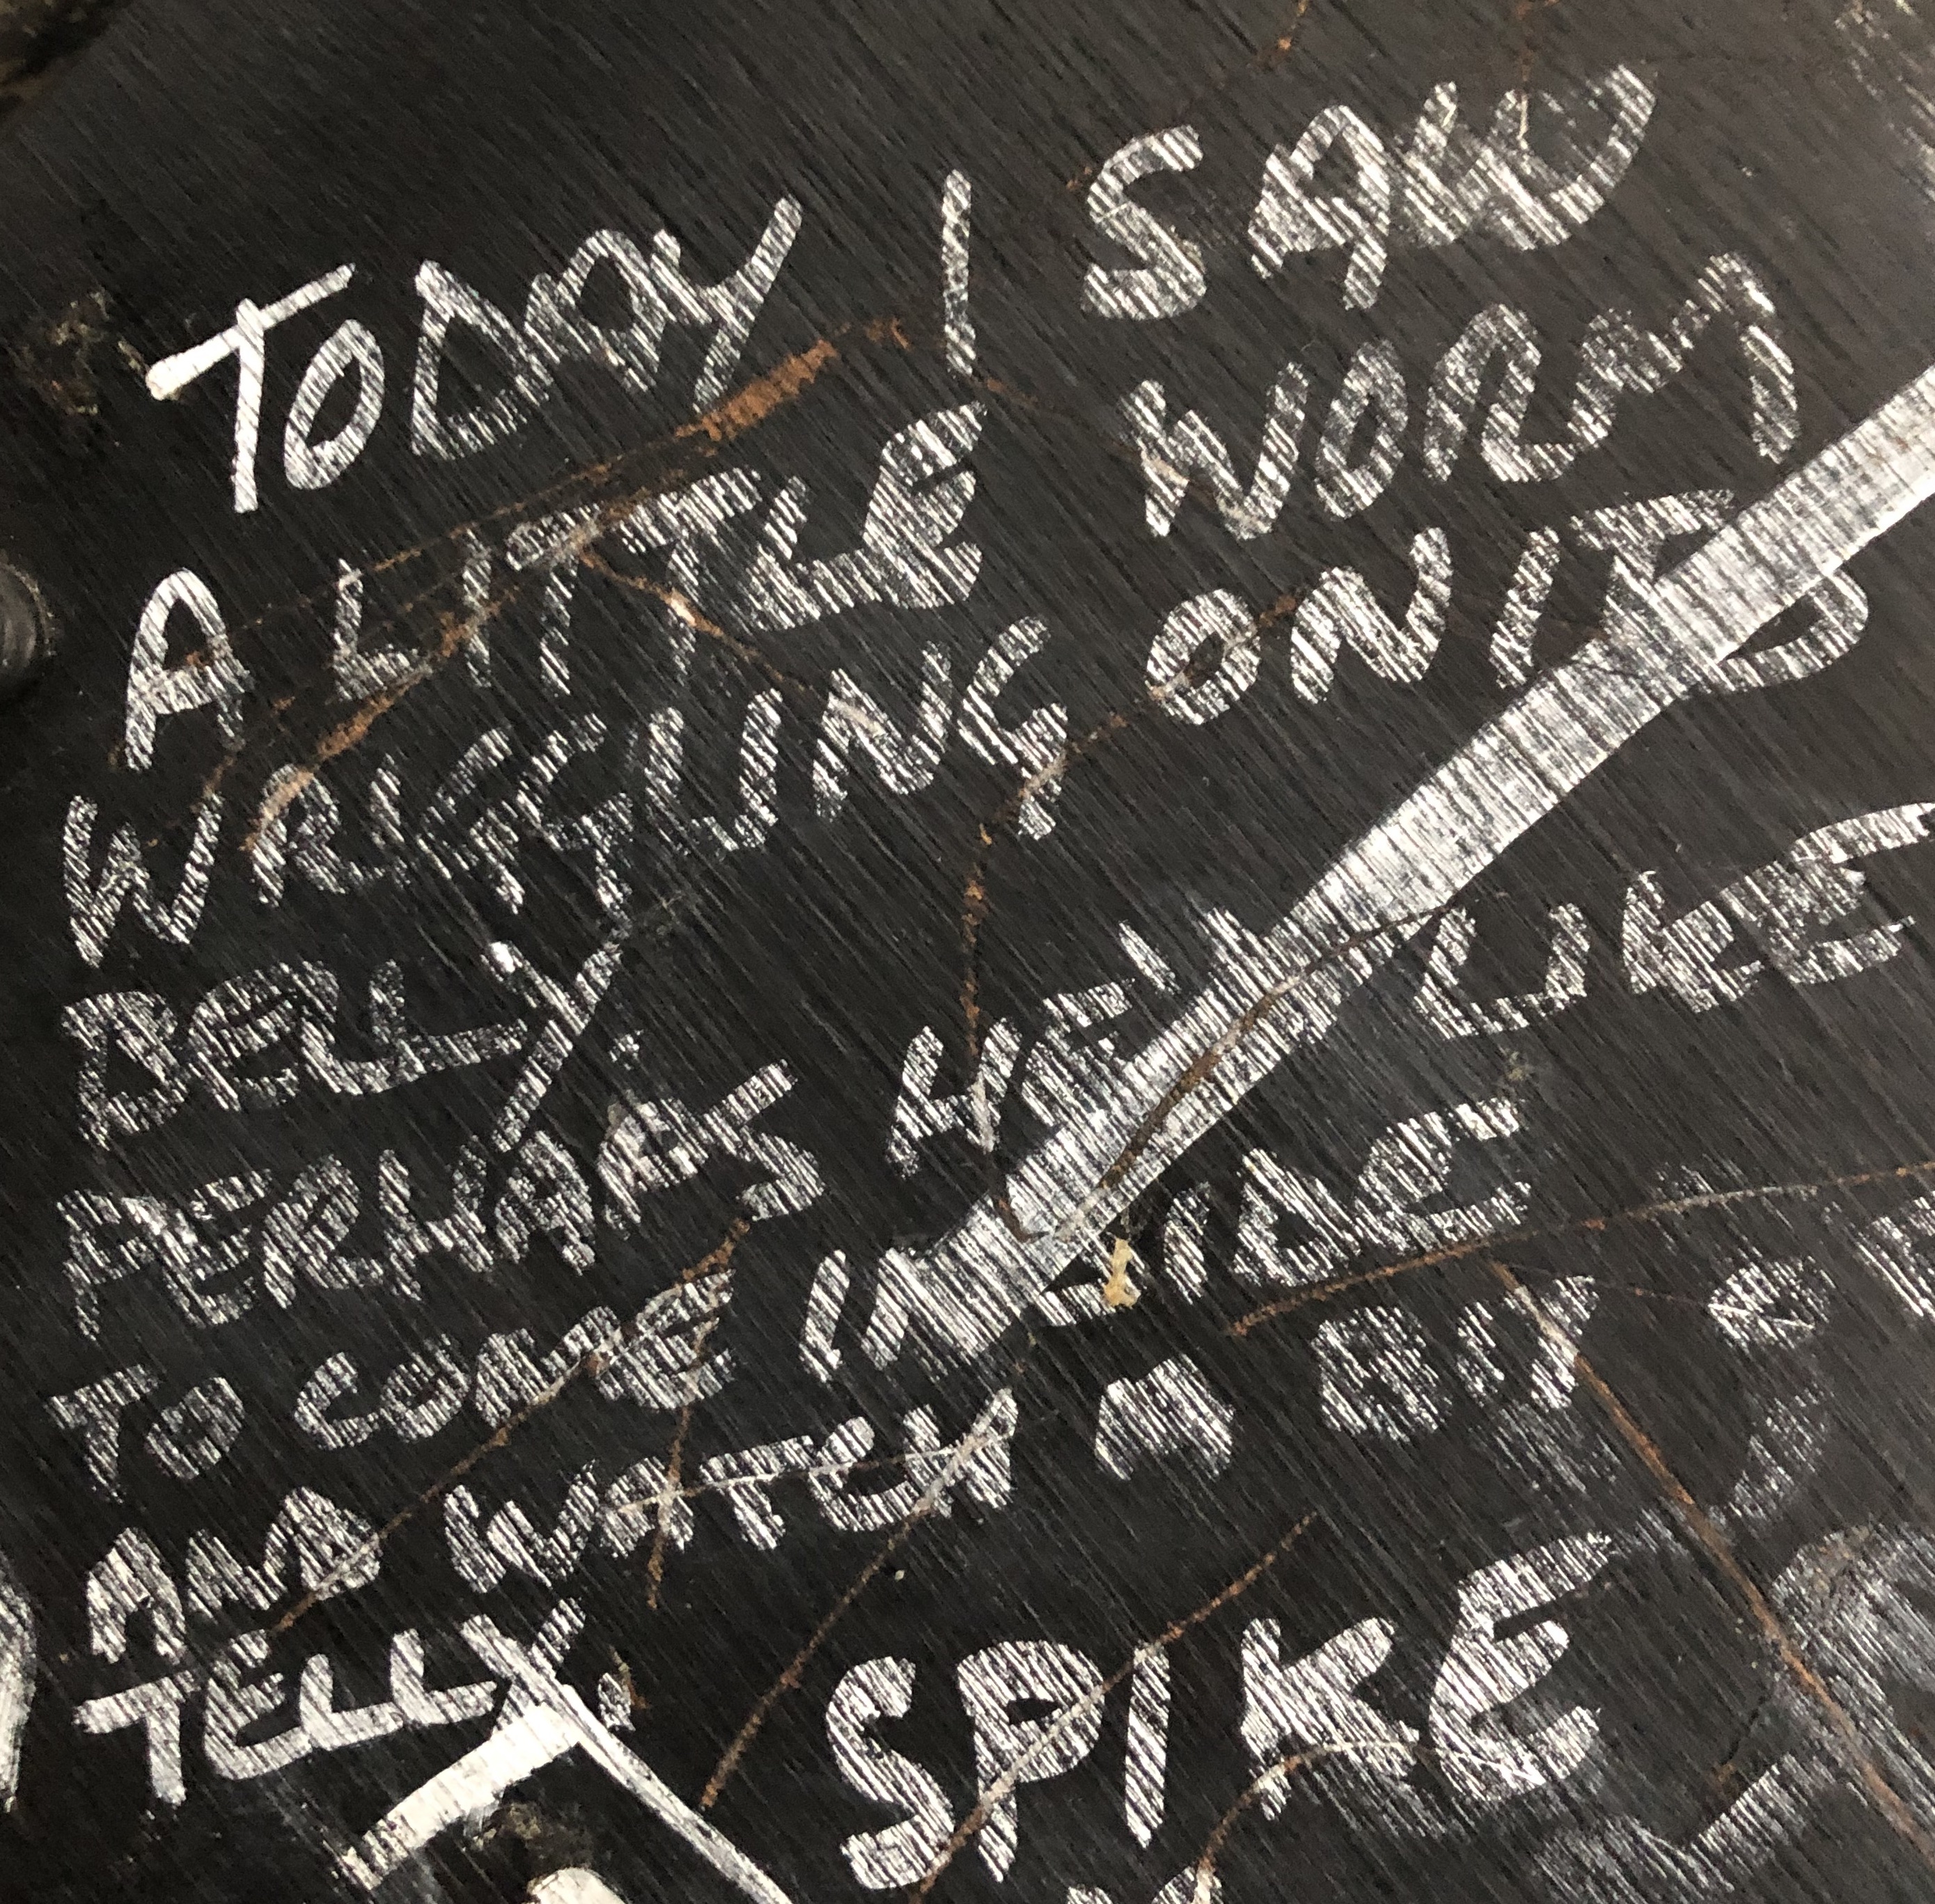 TODAY I SAW
A LITTLE WORM
WRIGGLING ON ITS
BELLY.
PERHAPS HE'D LIKE
TO COME INSIDE
AND WATCH A BIT
TELLY.
SPIKE